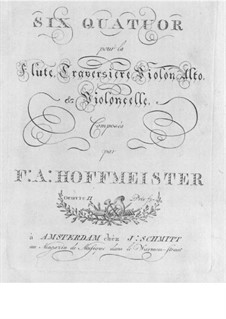 SIX QUATUOR
pour la
Flute Traversiere Violon Alto
& Violoncelle,
Composés
par
F: A: HOFFMEISTER
Oeuvre II Prix f
à AMSTERDAM chéz J: SCHMITT
au Magazin de Musique dans le Warmoes-straat